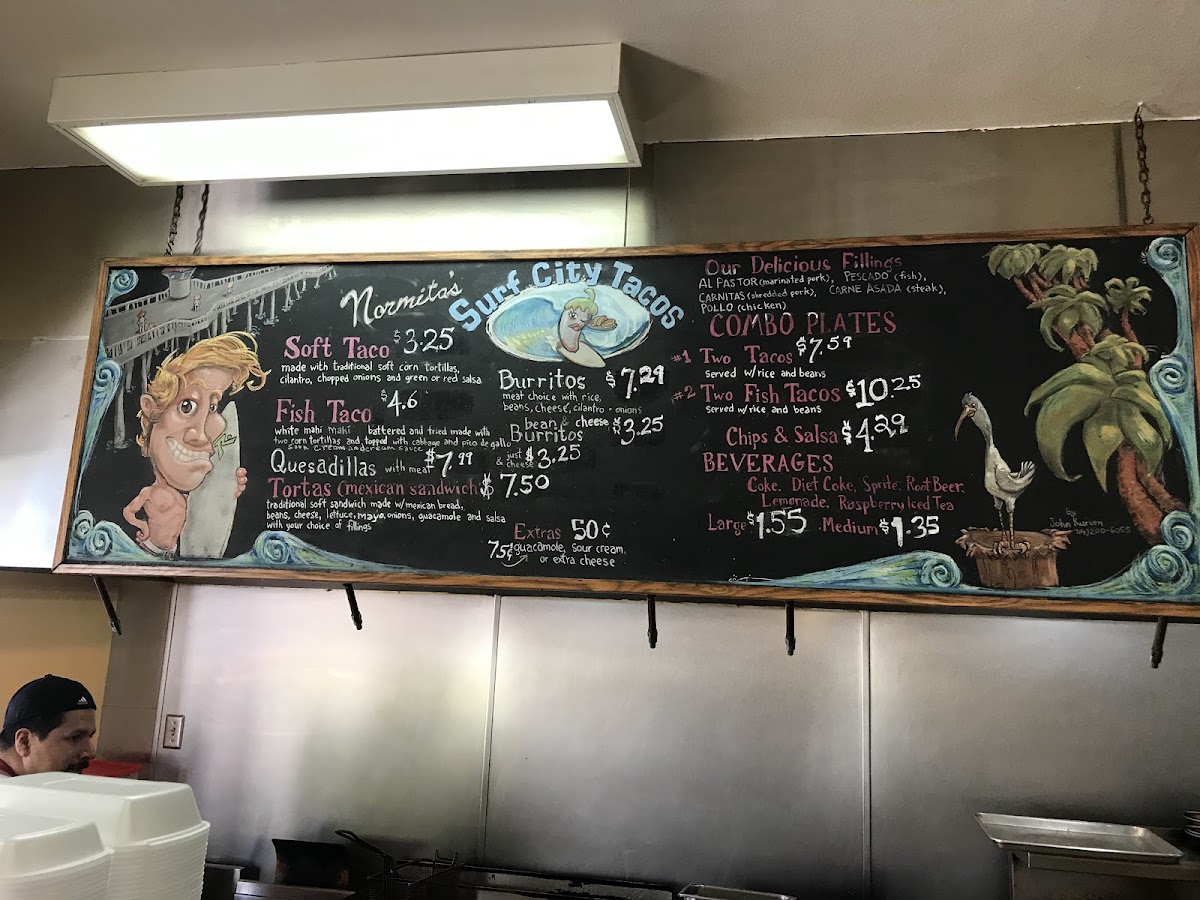 Normita's
Surf City Tacos
Soft Taco $3.25
made with traditional soft corn tortillas,
cilantro, chopped onions and green or red salsa
Fish Taco $4.6
white mahi mahi battered and fried made with
two corn tortillas and topped with cabbage and pico de gallo
sour cream and cream sauce
Quesadillas with meat $7.99 & just cheese $3.25
Tortas (mexican sandwich $7.50
traditional soft sandwich made w/mexican bread,
beans, cheese, lettuce, mayo, onions, guacamole and salsa
with your choice of fillings
Burritos $7.29
meat choice with rice,
beans, cheese, cilantro - onions
bean & cheese
Burritos $3.25
Extras 50¢
75¢ guacamole, sour cream,
or extra cheese
Our Delicious Fillings
AL PASTOR (marinated pork), PESCADO (fish),
CARNITAS (shredded pork), CARNE ASADA (steak),
POLLO (chicken)
COMBO PLATES
#1 Two Tacos $7.59
served w/rice and beans
#2 Two Fish Tacos $10.25
served w/rice and beans
Chips & Salsa $4.29
BEVERAGES
Coke, Diet Coke, Sprite, Root Beer,
Lemonade, Raspberry Iced Tea
Large $1.55 Medium $1.35
by
John